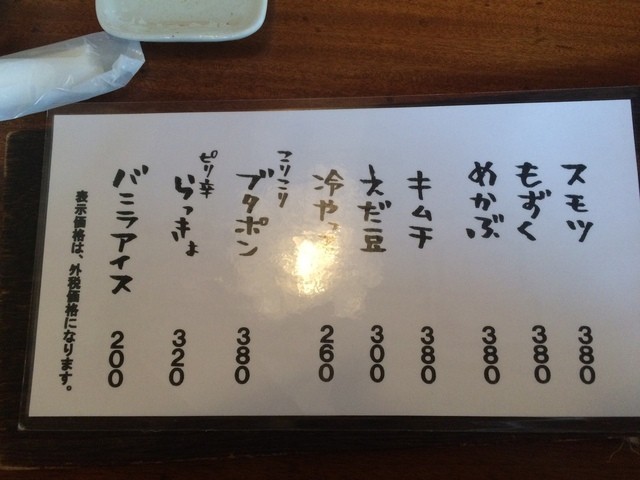 スモツ 380
もずく 380
めかぶ 380
キムチ 380
えだ豆 300
冷やっ 260
こりこり
ブタポン 380
ピリ辛
らっきょ 320
バニラアイス 200
表示価格は、外税価格になります。